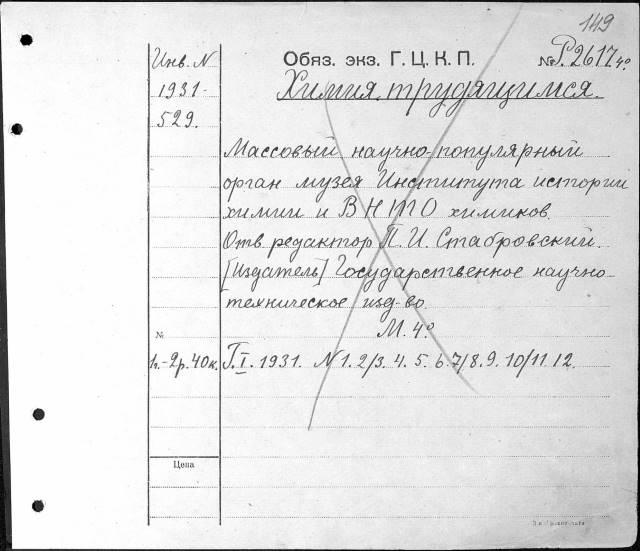 149
Инв. N
1931-
529.
Обяз. экз. Г. Ц. К. П.
№ Р2617 4°
Химия трудящимся.
Массовый научно-популярный
орган музея Института истории
химии и ВНИТО химиков.
Отв. редактор П. И. Стабровский.
[Издатель] Государственное научно-
техническое изд-во.
М. 4°.
№
1г.-2р.40к. Г.I. 1931. N 1. 2/3. 4. 5. 6. 7/8. 9. 10/11 12.
Цена